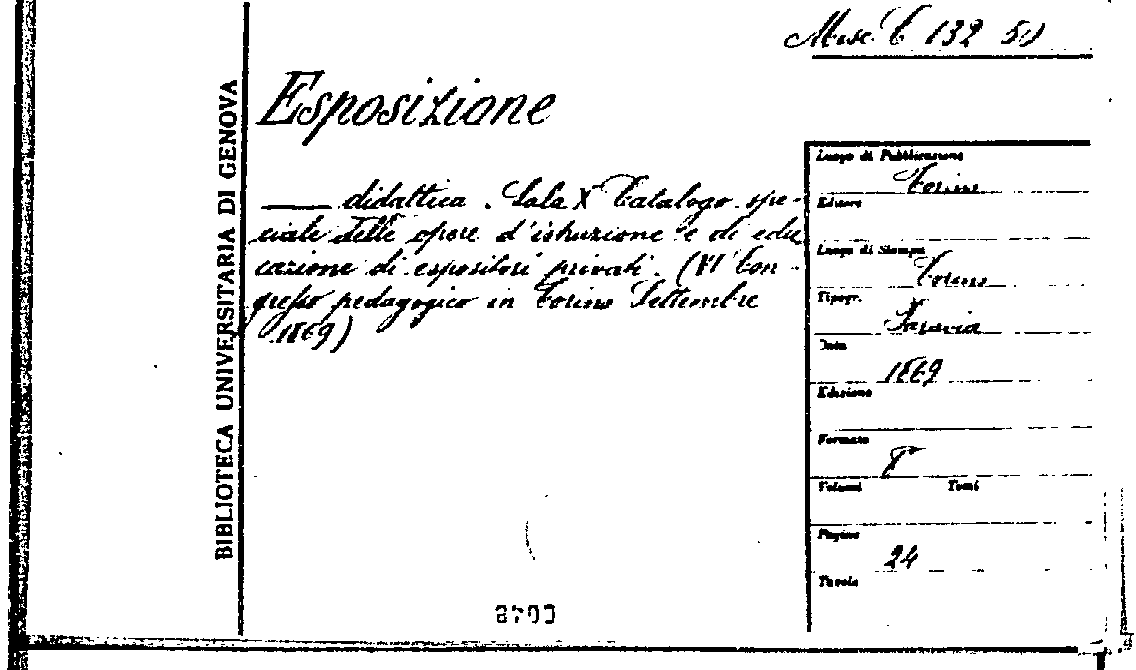 Misc. C 132 5
BIBLIOTECA UNIVERSITARIA DI GENOVA
Esposizione
___ didattica. Sala X Catalogo spe-
ciale delle opere d'istruzione e di edu
cazione di espositori privati. (VI° Con-
gresso pedagogico in Torino Settembre
1869)
Luogo di Pubblicazione
Torino
Editore
Luogo di Stampa
Torino
Tipogr.
Paravia
Data
1869
Edizione
Formato
Volumi Tomi
Pagine
24
Tavole